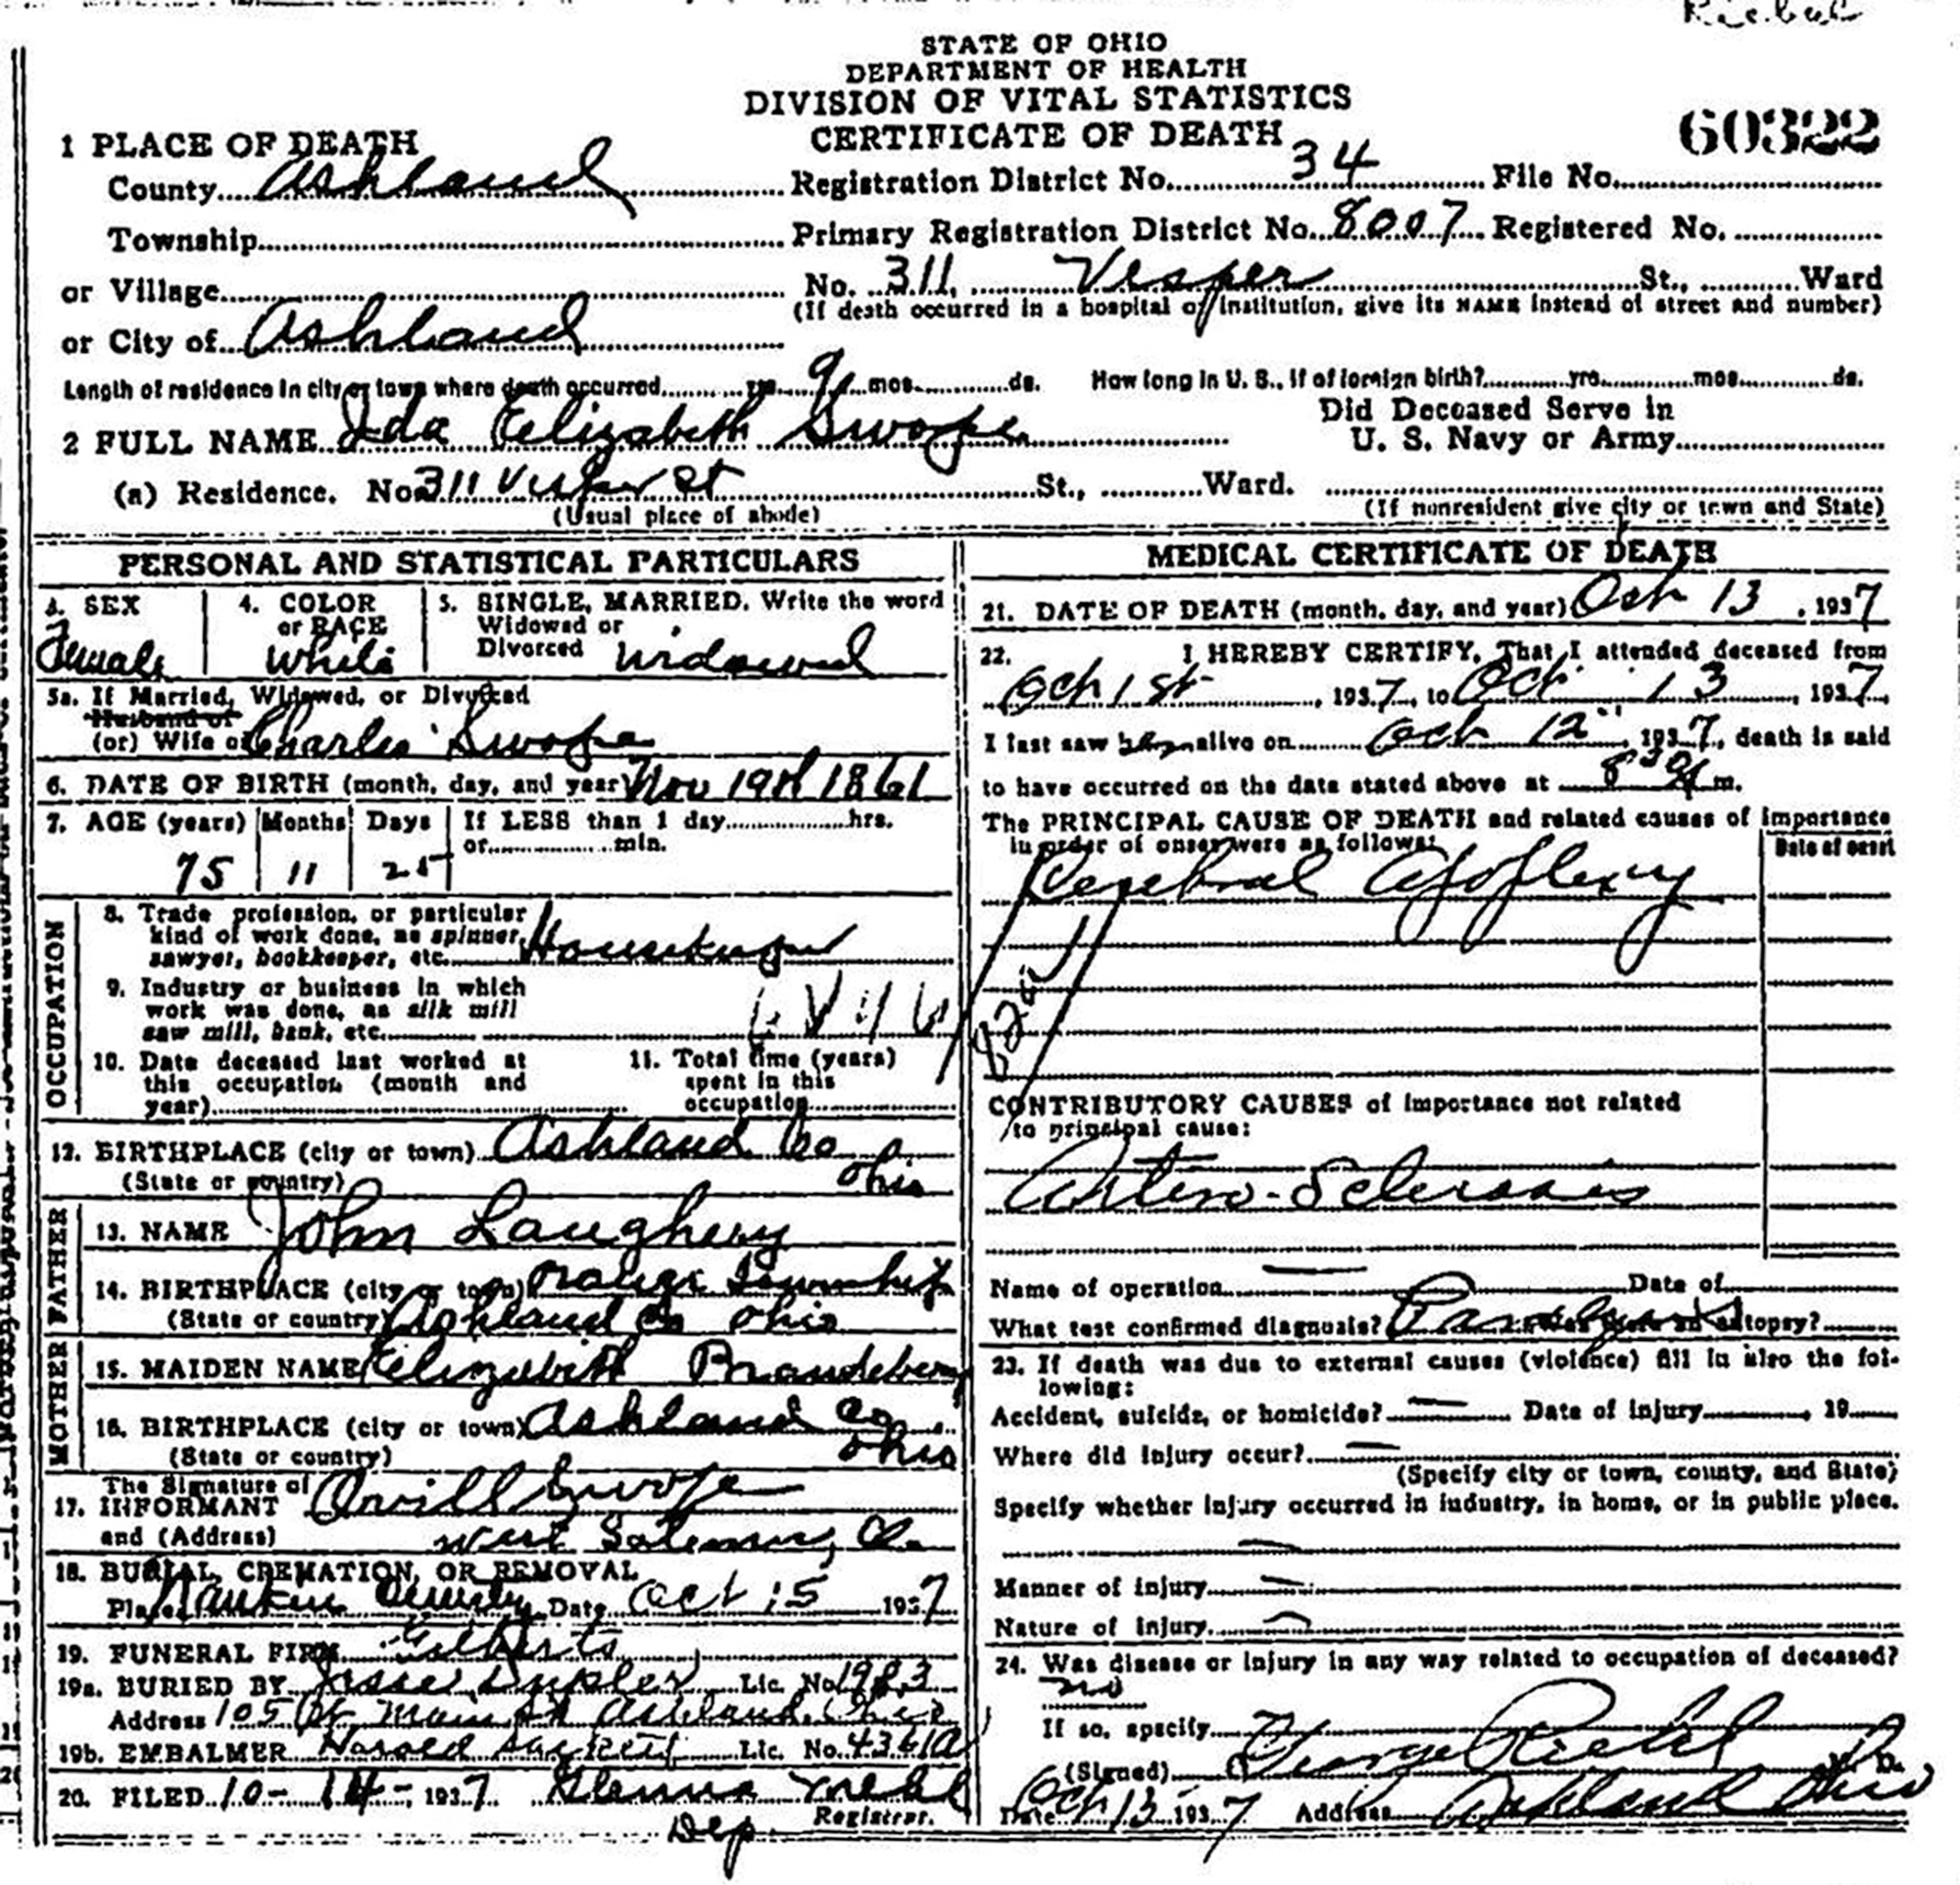 STATE OF OHIO
DEPARTMENT OF HEALTH
DIVISION OF VITAL STATISTICS
CERTIFICATE OF DEATH
60322
1 PLACE OF DEATH
County Ashland Registration District No. 34 File No.
Township Primary Registration District No. 8007 Registered No.
or Village No. 311 Vesper St., Ward
(If death occurred in a hospital or institution, give its NAME instead of street and number)
or City of Ashland
Length of residence in city or town where death occurred yrs. 9 mos. ds. How long in U. S., if of foreign birth? yrs. mos. ds.
2 FULL NAME Ida Elizabeth Swope Did Deceased Serve in U. S. Navy or Army
(a) Residence. No. 311 Vesper St St., Ward.
(Usual place of abode) (If nonresident give city or town and State)
PERSONAL AND STATISTICAL PARTICULARS
3. SEX Female
4. COLOR or RACE White
5. SINGLE, MARRIED, Write the word Widowed or Divorced widowed
5a. If Married, Widowed, or Divorced
Husband of
(or) Wife of Charles Swope
6. DATE OF BIRTH (month, day, and year) Nov 19th 1861
7. AGE (years) Months Days If LESS than 1 day hrs.
or min.
75 11 25
OCCUPATION
8. Trade profession, or particular
kind of work done, as spinner,
sawyer, bookkeeper, etc. Housekeeper
9. Industry or business in which
work was done, as silk mill
saw mill, bank, etc.
10. Date deceased last worked at
this occupation (month and
year)
11. Total time (years)
spent in this
occupation
12. BIRTHPLACE (city or town) Ashland Co
(State or country) Ohio
FATHER
13. NAME John Laughery
14. BIRTHPLACE (city or town) Orange Township
(State or country) Ashland Co Ohio
MOTHER
15. MAIDEN NAME Elizabeth Brandebery
16. BIRTHPLACE (city or town) Ashland Co.
(State or country) Ohio
The Signature of
17. INFORMANT Orvill Swope
and (Address) West Salem, O.
18. BURIAL, CREMATION, OR REMOVAL
Place Nankin Cemetery Date Oct 15 1937
19. FUNERAL FIRM Gilberts
19a. BURIED BY Jesse Dupler Lic. No. 1983
Address 105 W Main St Ashland, Ohio
19b. EMBALMER Harold Sackett Lic. No. 4361A
20. FILED 10-14-, 1937 Glenna Mehl
Dep. Registrar.
MEDICAL CERTIFICATE OF DEATH
21. DATE OF DEATH (month, day, and year) Oct 13, 1937
22. I HEREBY CERTIFY, That I attended deceased from
Oct 1st, 1937, to Oct 13, 1937
I last saw her alive on Oct 12", 1937, death is said
to have occurred on the date stated above at 8 30 m.
The PRINCIPAL CAUSE OF DEATH and related causes of importance
in order of onset were as follows: Date of onset
Cerebral Apoplexy
CONTRIBUTORY CAUSES of importance not related
to principal cause:
Arterio-Sclerosis
Name of operation — Date of
What test confirmed diagnosis? Paralysis autopsy?
23. If death was due to external causes (violence) fill in also the fol-
lowing:
Accident, suicide, or homicide? — Date of injury, 19
Where did injury occur? —
(Specify city or town, county, and State)
Specify whether injury occurred in industry, in home, or in public place.
—
Manner of injury —
Nature of injury —
24. Was disease or injury in any way related to occupation of deceased?
no
If so, specify
(Signed) George Riebel M. D.
Date Oct 13 1937 Address Ashland Ohio